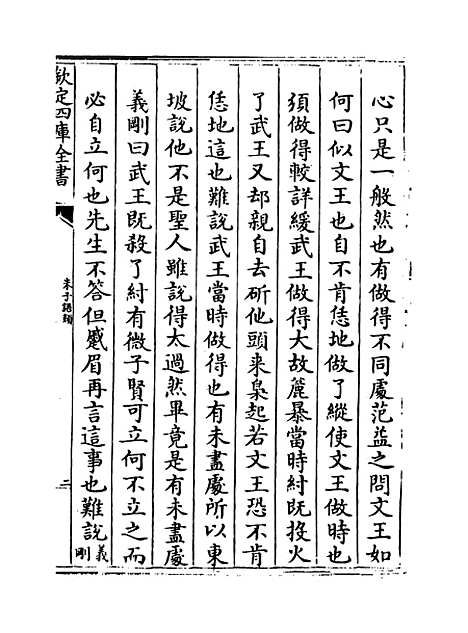 心只是一般然也有做得不同處范益之問文王如
何曰似文王也自不肯恁地做了縱使文王做時也
須做得較詳緩武王做得大故麤暴當時紂既投火
了武王又却親自去斫他頭來梟起若文王恐不肯
恁地這也難說武王當時做得也有未盡處所以東
坡說他不是聖人雖說得太過然畢竟是有未盡處
義剛曰武王既殺了紂有微子賢可立何不立之而
必自立何也先生不答但蹙眉再言這事也難說義剛
欽定四庫全書
朱子語類
二